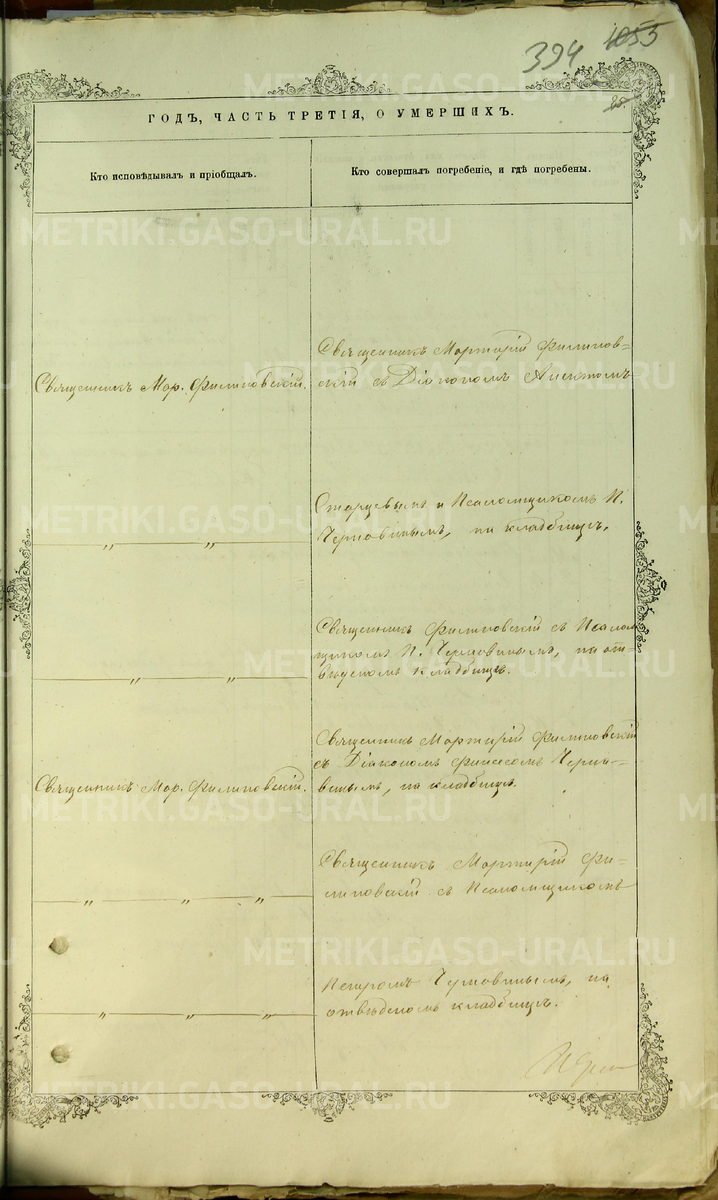 394 1055
25.
ГОДЪ, ЧАСТЬ ТРЕТІЯ, О УМЕРШИХЪ.
Кто исповѣдывалъ и пріобщалъ.
Кто совершалъ погребеніе, и гдѣ погребены.
Священникъ Мар. Филиповскій.
Священникъ Мартирій Филипов-
скій съ Діакономъ
„ „
Старцевымъ и Псаломщикомъ П.
Черновинымъ, на кладбищѣ.
„ „
Священникъ Филиповскій съ Псалом-
щикомъ П. Черновинымъ, на от-
веденомъ кладбищѣ.
Священникъ Мар. Филиповскій.
Священникъ Мартирій Филиповскій
съ Діакономъ Черно-
винымъ, на кладбищѣ.
„ „ „
Священникъ Мартирій Фи-
липовскій съ Псаломщикомъ
„ „ „
Петромъ Черновинымъ, на
отведеномъ кладбищѣ.
METRIKI.GASO-URAL.RU